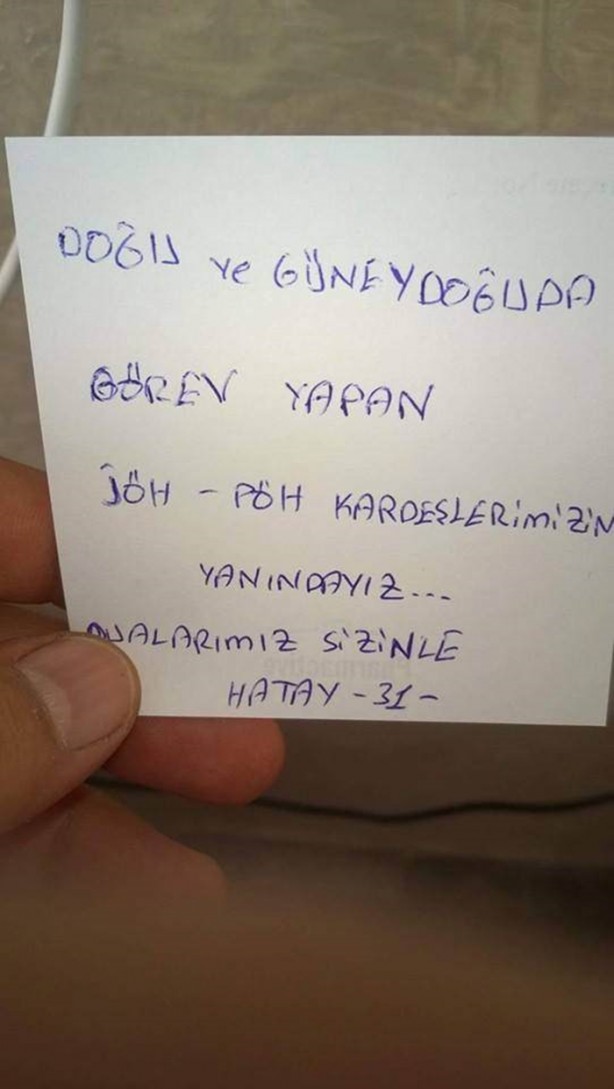 DOĞU ve GÜNEYDOĞUDA
GÖREV YAPAN
JÖH - PÖH KARDEŞLERİMİZİN
YANINDAYIZ...
DUALARIMIZ SİZİNLE
HATAY -31-
Pharmactive